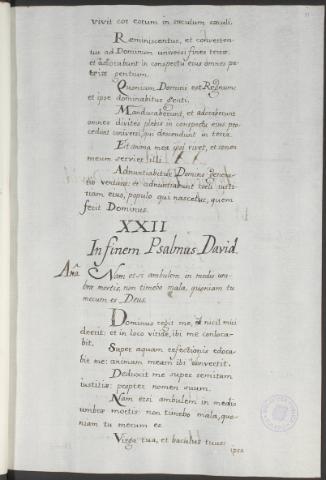 vivit cor eorum in sæculum sæculi.
Reminiscentur, et converten-
tur ad Dominum universi fines terræ.
et adorabunt in conspectu eius omnes pa-
triæ gentium.
Quoniam Domini est Regnum:
et ipse dominabitur Genti.
Manducaberunt, et adoraberunt
omnes divites plebis in conspectu eius pro-
cedunt universi, qui descendunt in terra.
Et anima mea ipsi vivet, et semen
meum serviet illi.
Adnuntiabitur Domino Genera-
tio ventura: et adnuntiabunt cœli iusti-
tiam eius, populo qui nascetur, quem
fecit Dominus.
XXII
In finem Psalmus David
Aña Nam et si ambulem in medio um-
bræ mortis, non timebo mala, quoniam tu
mecum es Deus.
Dominus regit me, et nicil mihi
deerit: et in loco viridi, ibi me conloca-
bit.
Super aquam refectionis edoca-
bit me: animam meam ibi convertit.
Deduxit me super semitam
iustitiæ: propter nomen suum.
Nam etsi ambulem in medio
umbræ mortis: non timebo mala, quo-
niam tu mecum es.
Virga tua, et baculus tuus:
ipsa